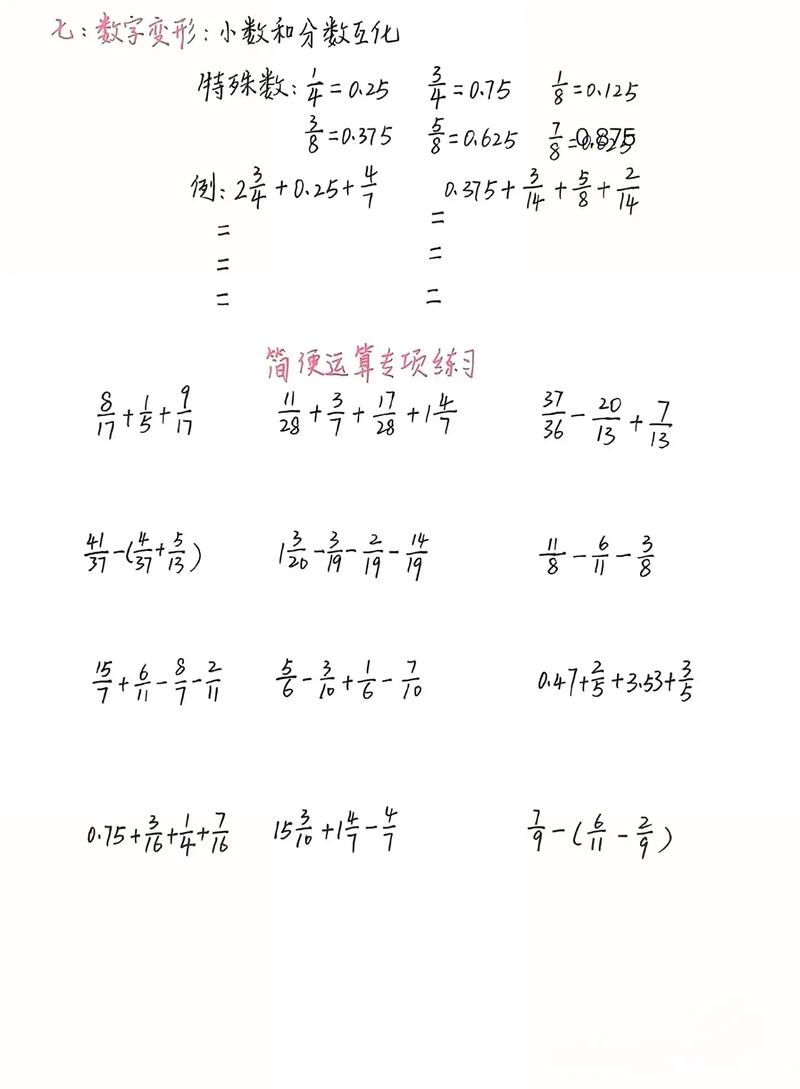 七：数字变形：小数和分数互化
特殊数：1/4=0.25 3/4=0.75 1/8=0.125
3/8=0.375 5/8=0.625 7/8=0.875
例：2 3/4+0.25+4/7 0.375+3/14+5/8+2/14
= =
= =
= =
简便运算专项练习
8/17+1/5+9/17 11/28+3/7+17/28+1 4/7 37/36-20/13+7/13
41/37-(4/37+5/13) 1 3/20-3/19-2/19-14/19 11/8-6/11-3/8
15/7+6/11-8/7-2/11 5/6-3/10+1/6-7/10 0.47+2/5+3.53+3/5
0.75+3/16+1/4+7/16 15 3/10+1 4/7-4/7 7/9-(6/11-2/9)